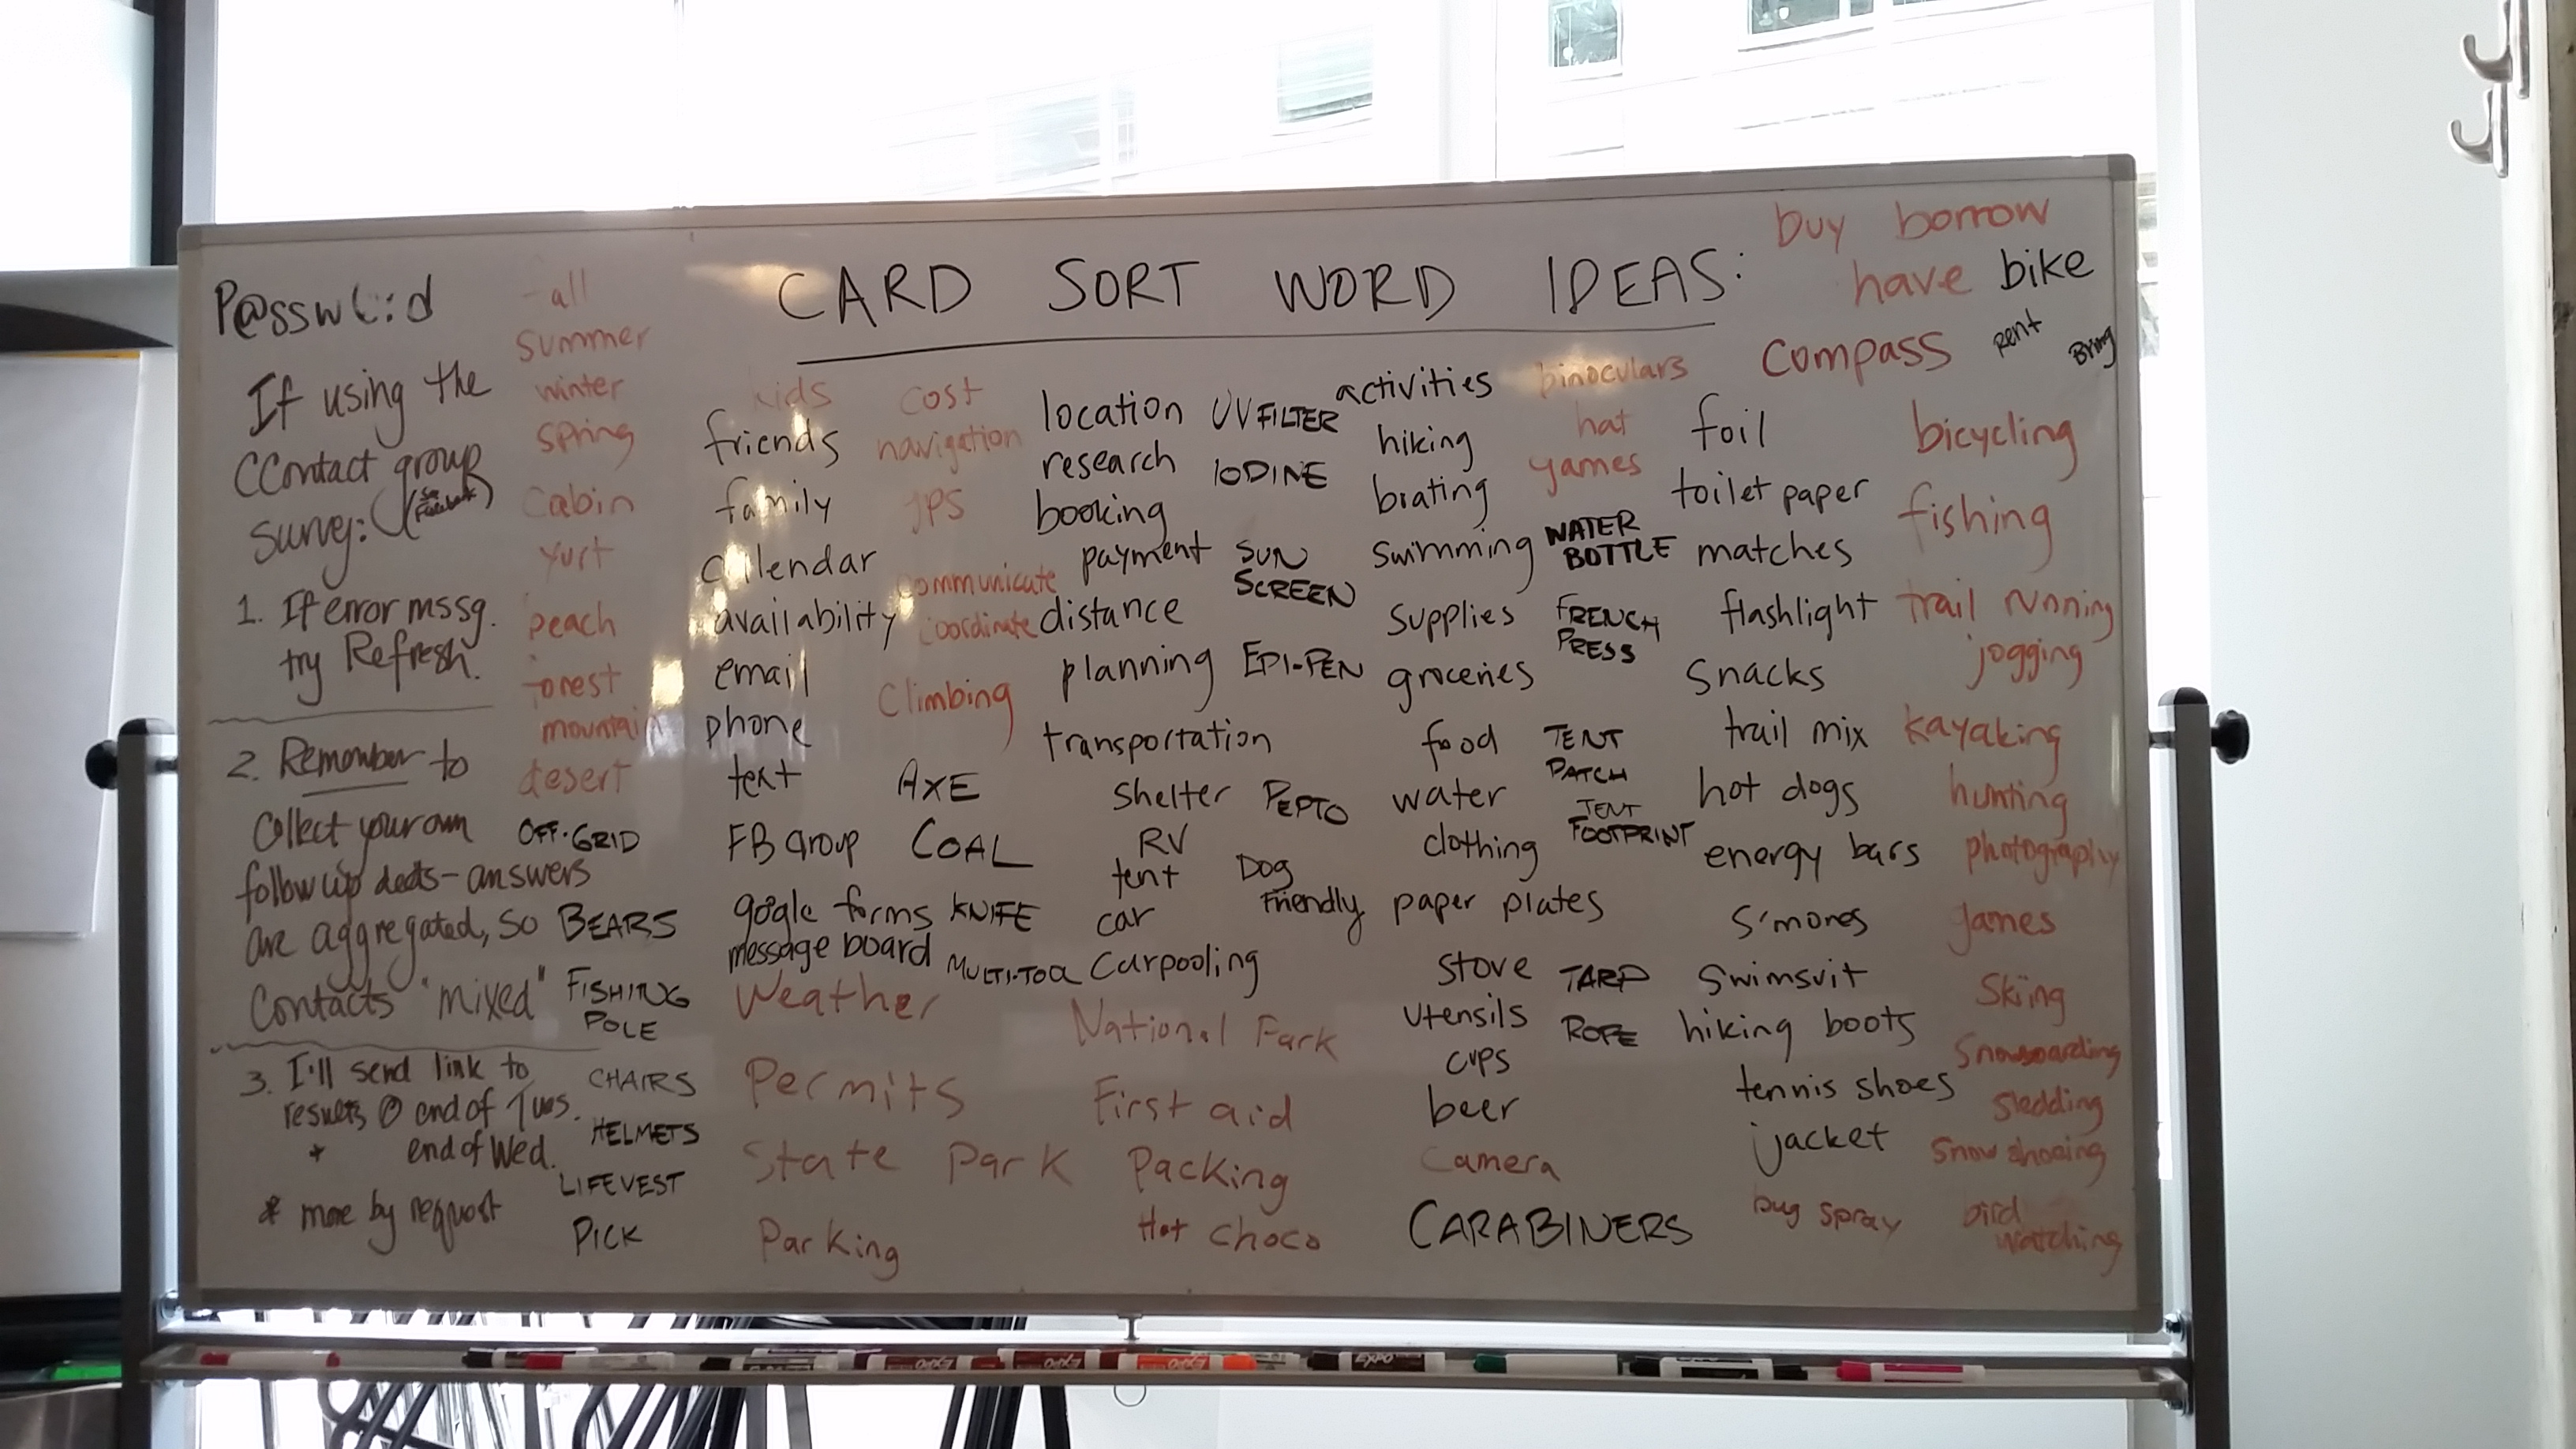 CARD SORT WORD IDEAS:
If using the
CContact group
survey: (see Facebook)
1. If error mssg.
try Refresh.
2. Remember to
Collect your own
follow up deets - answers
are aggregated, so
Contacts "mixed"
3. I'll send link to
results @ end of Tues.
+ end of Wed.
* more by request
fall
summer
winter
spring
Cabin
yurt
beach
forest
mountain
desert
OFF-GRID
BEARS
FISHING
POLE
CHAIRS
HELMETS
LIFEVEST
PICK
kids
friends
family
calendar
availability
email
phone
text
FB Group
google forms
message board
Weather
Permits
State Park
Parking
cost
navigation
GPS
communicate
coordinate
Climbing
AXE
COAL
KNIFE
MULTI-TOOL
location
research
booking
payment
distance
planning
transportation
shelter
RV
tent
car
Carpooling
National Park
First aid
Packing
Hot choco
UV FILTER
IODINE
SUN
SCREEN
EPI-PEN
PEPTO
DOG
Friendly
activities
hiking
boating
swimming
supplies
groceries
food
water
clothing
paper plates
stove
utensils
cups
beer
camera
CARABINERS
binoculars
hat
games
WATER
BOTTLE
FRENCH
PRESS
TENT
PATCH
TENT
FOOTPRINT
TARP
ROPE
foil
toilet paper
matches
flashlight
snacks
trail mix
hot dogs
energy bars
s'mores
swimsuit
hiking boots
tennis shoes
jacket
bug spray
buy borrow
have bike
compass
Rent
Bring
bicycling
fishing
trail running
jogging
kayaking
hunting
photography
games
skiing
snowboarding
sledding
snow shoeing
bird
watching